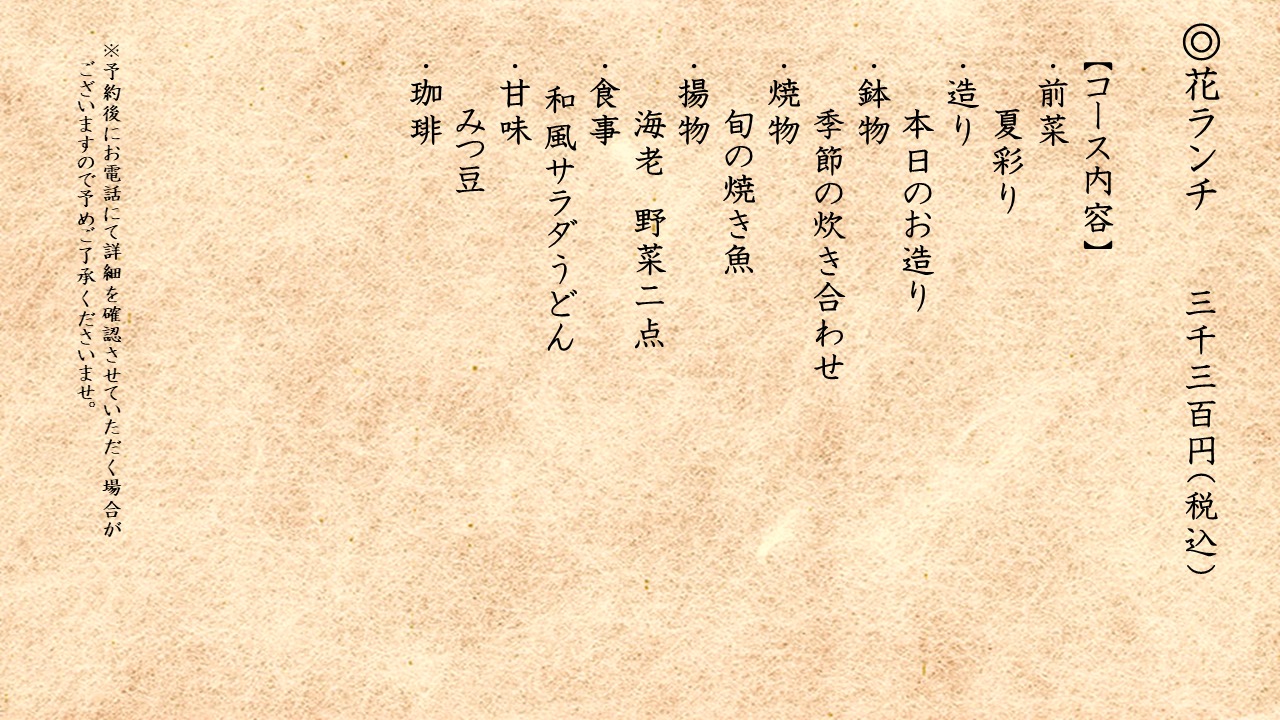 ◎花ランチ　三千三百円(税込)
【コース内容】
・前菜
夏彩り
・造り
本日のお造り
・鉢物
季節の炊き合わせ
・焼物
旬の焼き魚
・揚物
海老　野菜二点
・食事
和風サラダうどん
・甘味
みつ豆
・珈琲
※予約後にお電話にて詳細を確認させていただく場合が
ございますので予めご了承くださいませ。